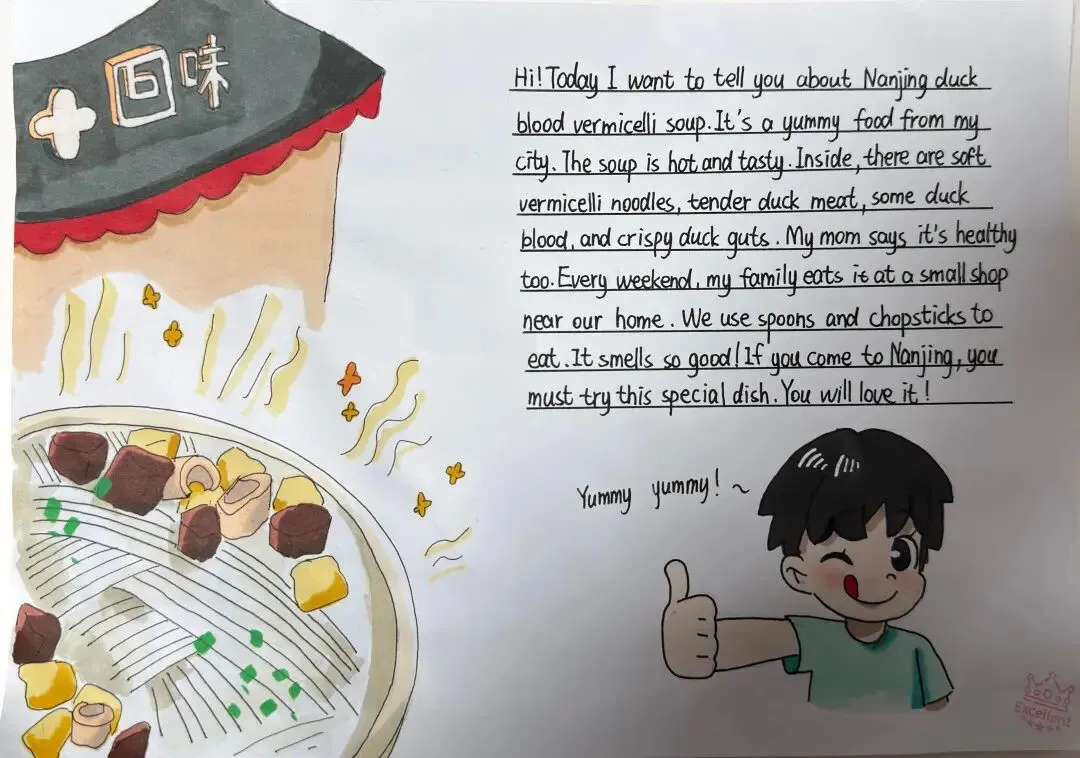 回味
Hi! Today I want to tell you about Nanjing duck
blood vermicelli soup. It's a yummy food from my
city. The soup is hot and tasty. Inside, there are soft
vermicelli noodles, tender duck meat, some duck
blood, and crispy duck guts. My mom says it's healthy
too. Every weekend, my family eats it at a small shop
near our home. We use spoons and chopsticks to
eat. It smells so good! If you come to Nanjing, you
must try this special dish. You will love it!
Yummy yummy! ~
Excellent